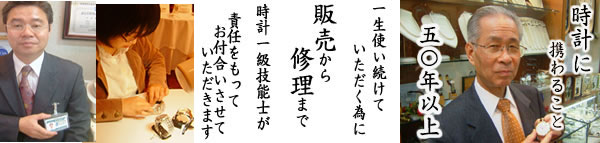 時計に
携わること
五〇年以上
一生使い続けて
いただく為に
販売から
修理まで
時計一級技能士が
責任をもって
お付合いさせて
いただきます